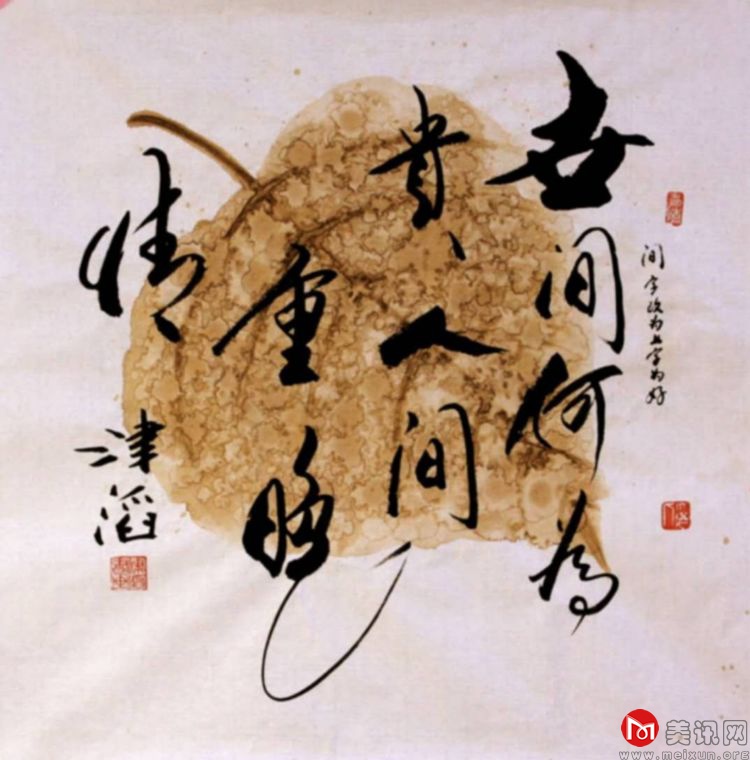 世间何為
貴、人间
重晚
情
津滔
间字改为上字为好
美讯网
www.meixun.org